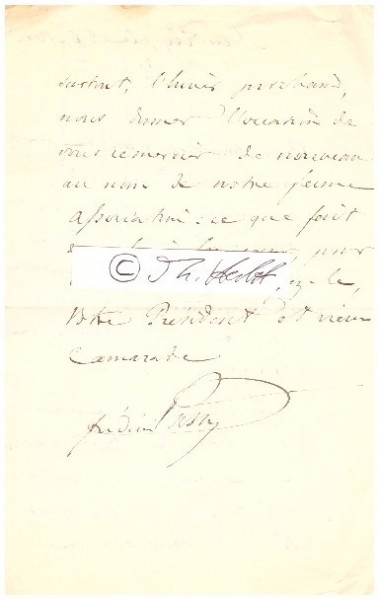 surtout, l'hiver prochain,
nous donner l'occasion de
vous remercier de nouveau
au nom de notre jeune
Association : ce que fait
pour
© Th. Hecht
le,
Votre Président et vieux
Camarade
frédéric Passy